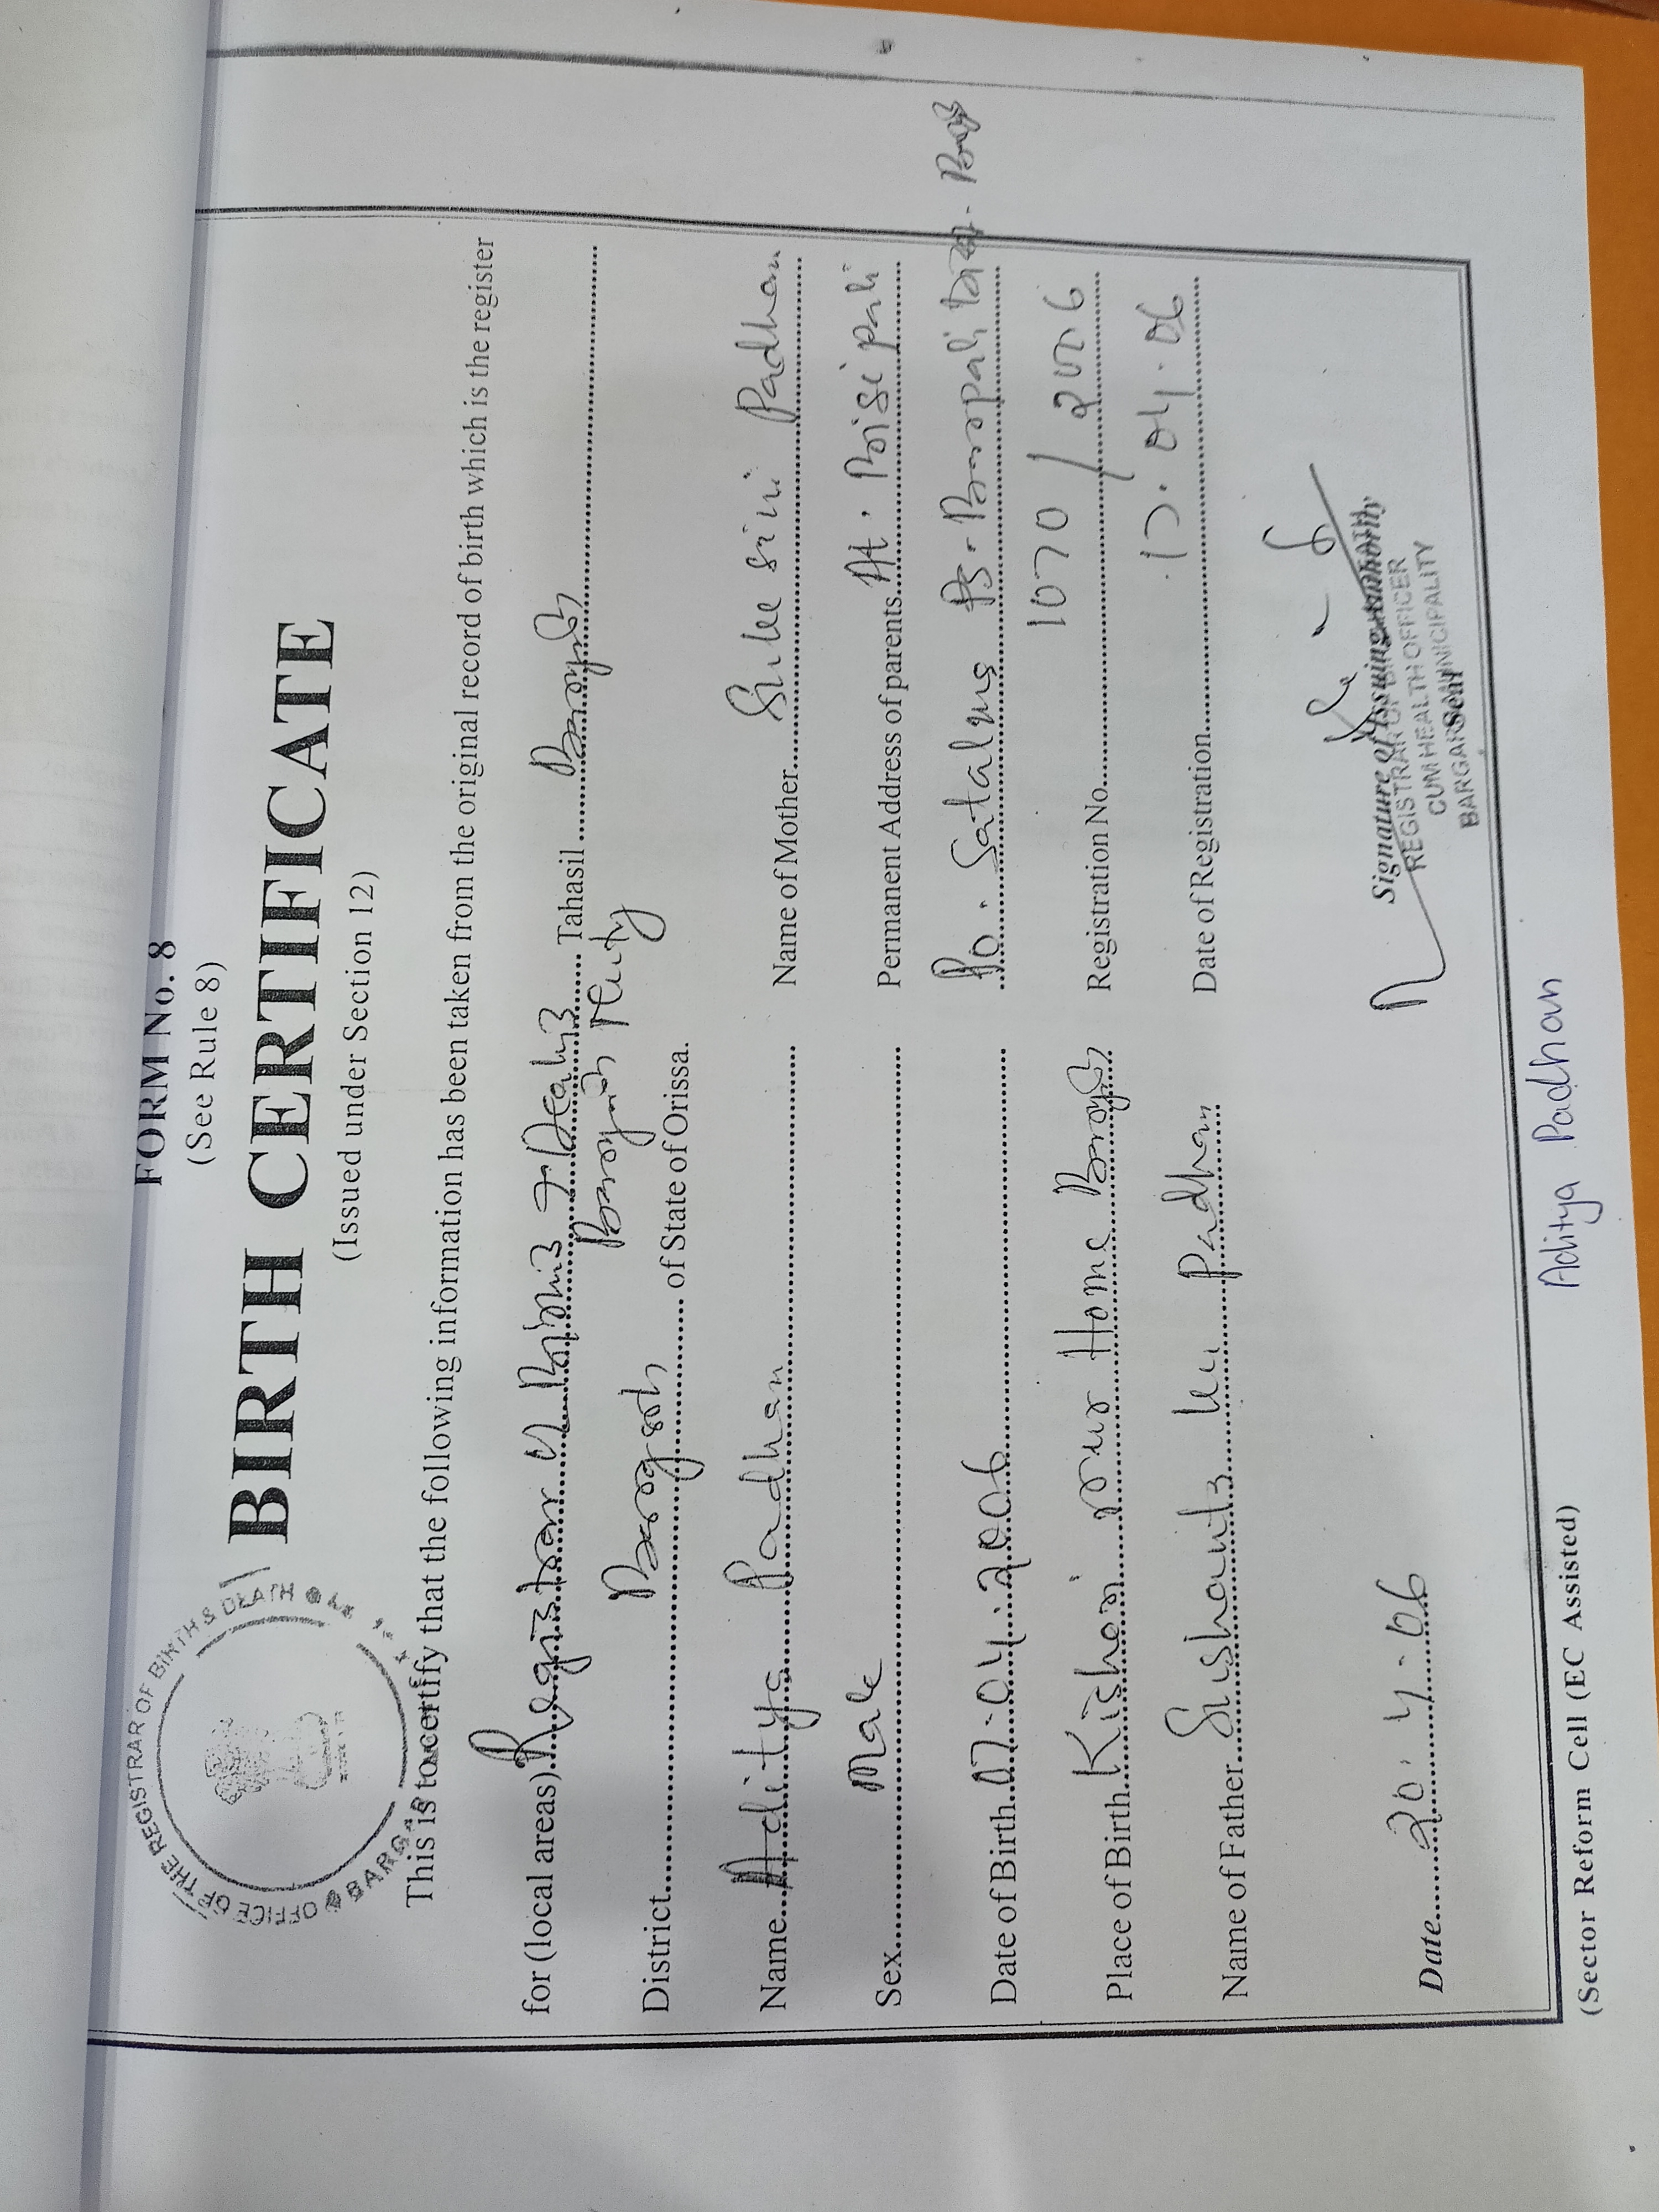 FORM No. 8
(See Rule 8)
BIRTH CERTIFICATE
(Issued under Section 12)
OFFICE OF THE REGISTRAR OF BIRTH & DEATH
This is to certify that the following information has been taken from the original record of birth which is the register
for (local areas) Registrar of Births & Deaths Tahasil Bargarh
Bargarh
District Bargarh of State of Orissa.
Name Aditya Padhan
Name of Mother Padhan
Sex Male
Permanent Address of parents At.
Po. Satalma Ps. Barapali
Date of Birth 07.04.2006
Registration No. 1070 / 2006
Place of Birth Kishori Nur Home Bargarh
Date of Registration 17.04.06
Name of Father Sushanta Ku Padhan
Date 20.4.06
Signature of Issuing authority
REGISTRAR OF
CUM HEALTH OFFICER
BARGARH MUNICIPALITY
Seal
Aditya Padhan
(Sector Reform Cell (EC Assisted)